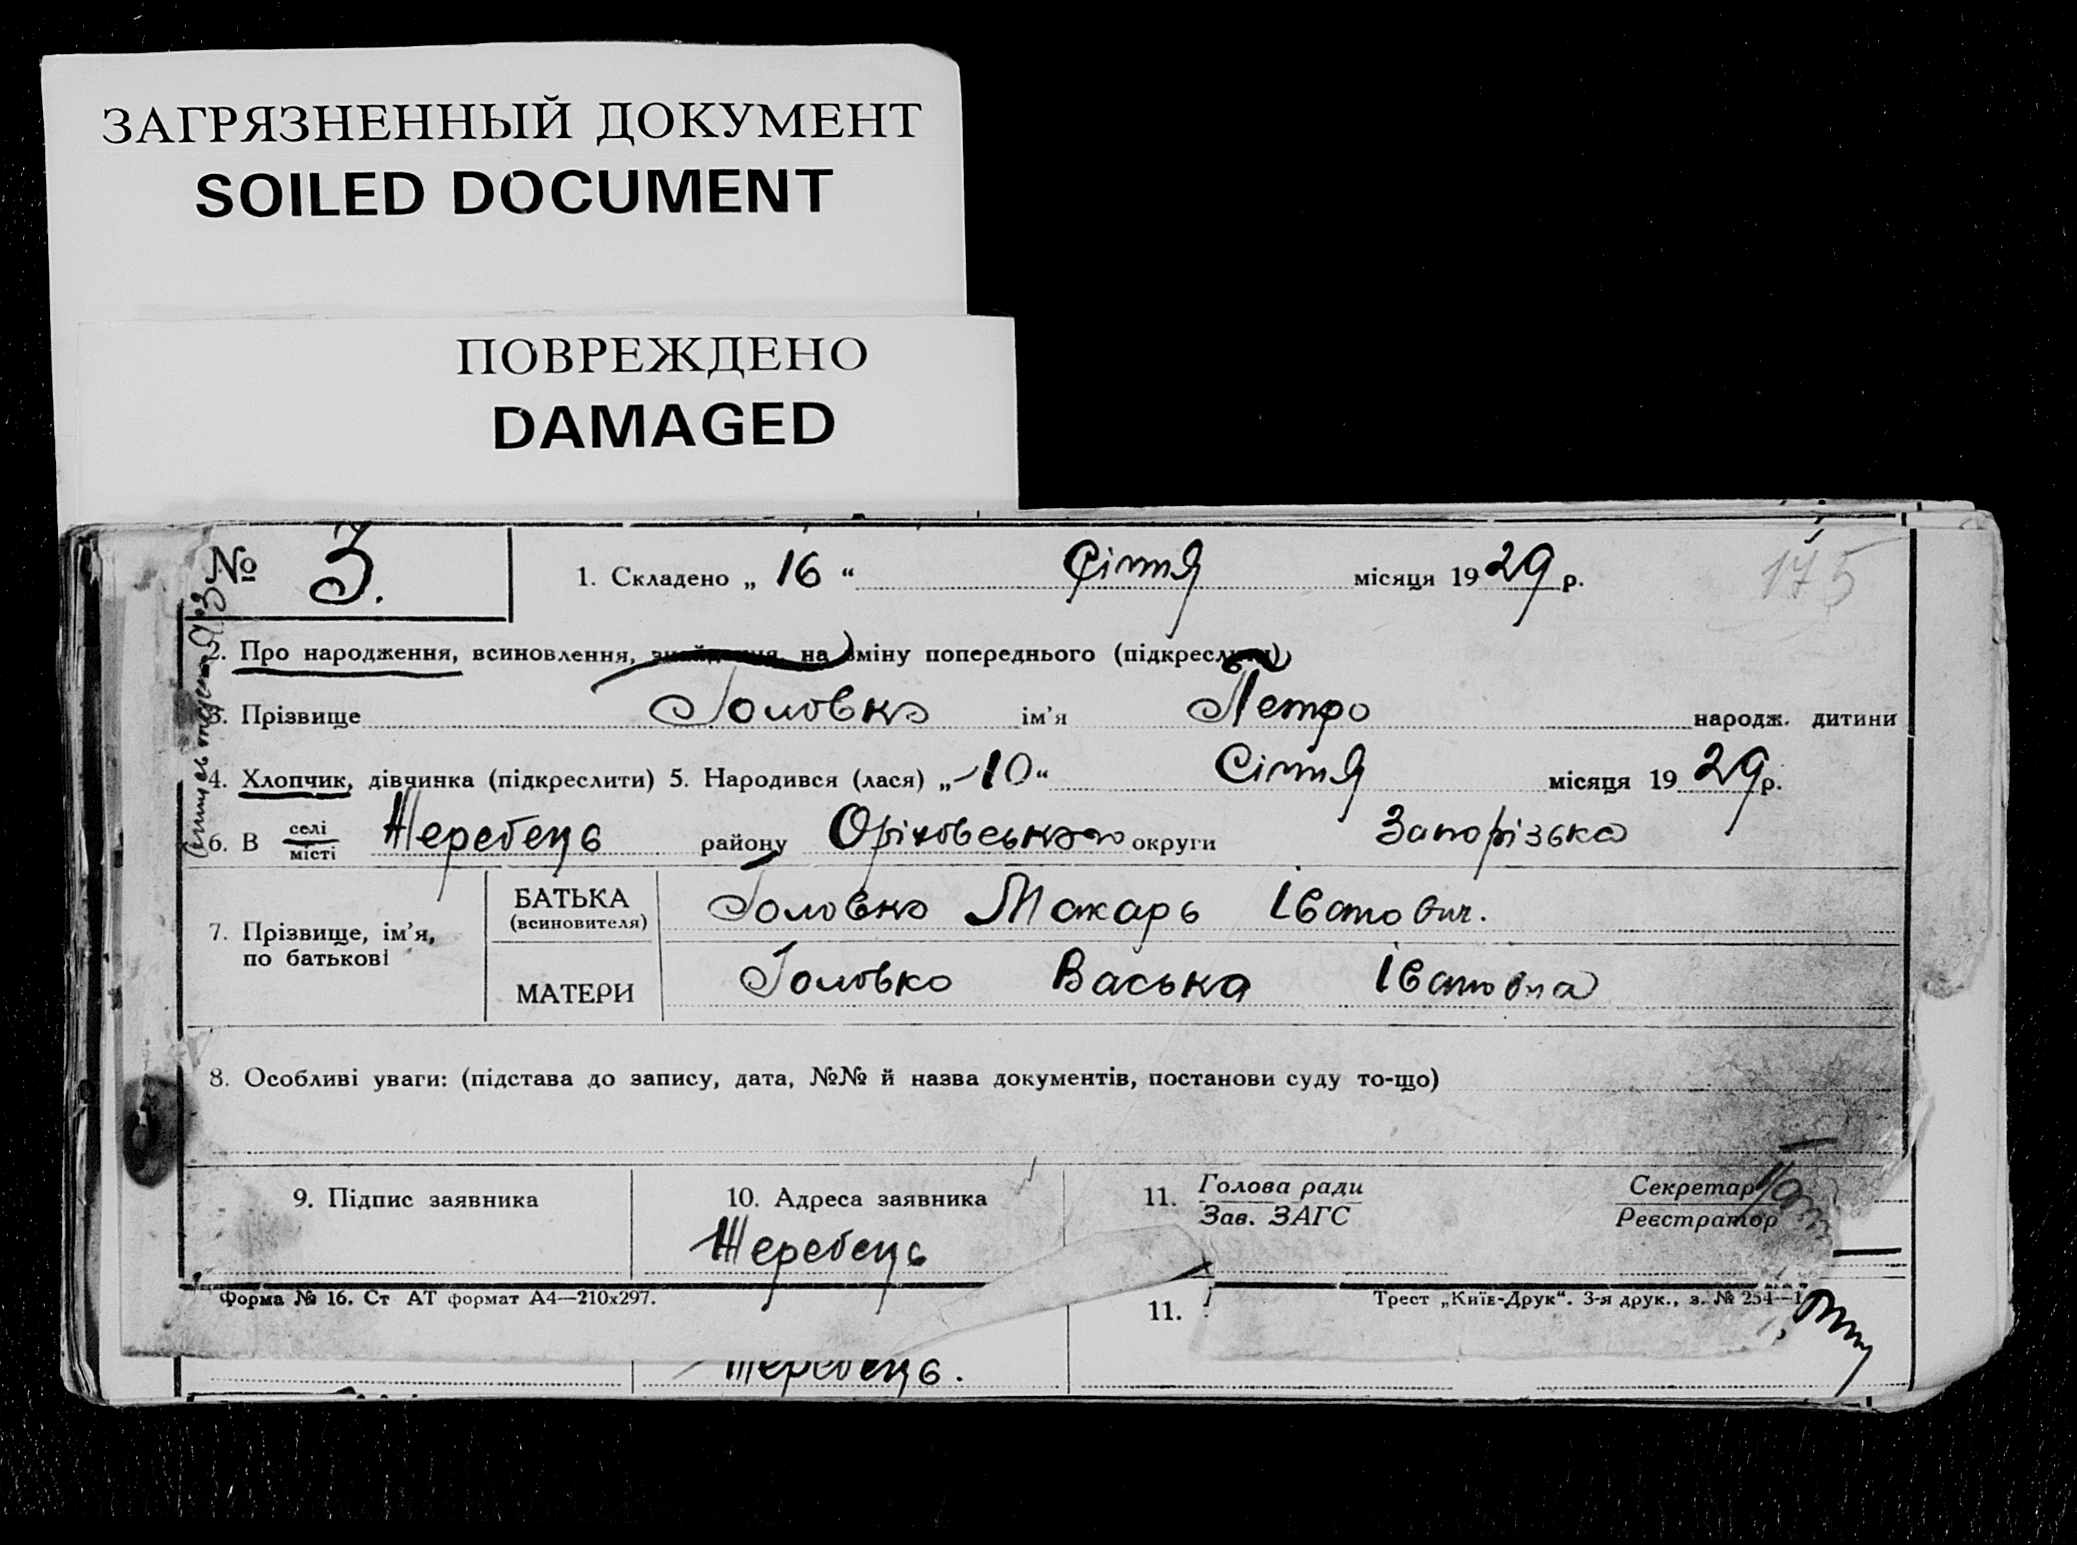 ЗАГРЯЗНЕННЫЙ ДОКУМЕНТ
SOILED DOCUMENT
ПОВРЕЖДЕНО
DAMAGED
№ 3.
1. Складено „ 16 “ Січня місяця 1929 р.
175
2. Про народження, всиновлення, знайдення, на зміну попереднього (підкреслити)
3. Прізвище Головко ім'я Петро народж. дитини
4. Хлопчик, дівчинка (підкреслити) 5. Народився (лася) „ 10 “ Січня місяця 1929 р.
6. В селі
місті Жеребець району Оріховського округи Запорізька
7. Прізвище, ім'я,
по батькові
БАТЬКА
(всиновителя) Головко Макарь Іванович.
МАТЕРИ Головко Васька Івановна
8. Особливі уваги: (підстава до запису, дата, №№ й назва документів, постанови суду то-що)
9. Підпис заявника
10. Адреса заявника
Жеребець
11. Голова ради
Зав. ЗАГС
Секретар
Реєстратор
Форма № 16. Ст АТ формат А4—210х297.
Трест „Київ-Друк“. 3-я друк., з. № 254—1
11.
Жеребець.